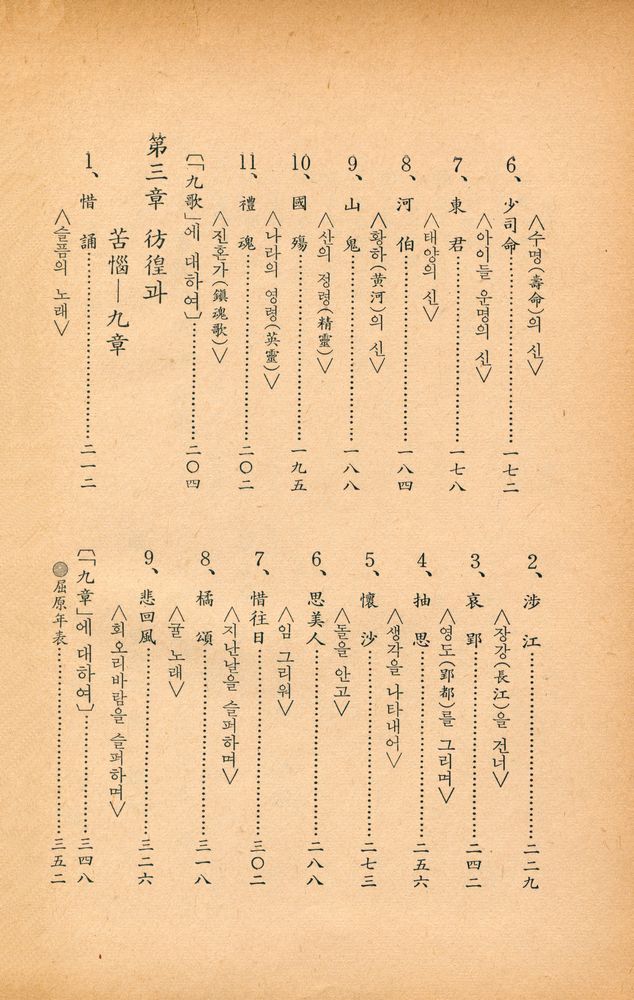 <수명(壽命)의 신>
6、少司命…………一七二
<아이들 운명의 신>
7、東君…………一七八
<태양의 신>
8、河伯…………一八四
<황하(黃河)의 신>
9、山鬼…………一八八
<산의 정령(精靈)>
10、國殤…………一九五
<나라의 영령(英靈)>
11、禮魂…………二〇二
<진혼가(鎭魂歌)>
〔「九歌」에 대하여〕…………二〇四
第三章 彷徨과
苦惱―九章
1、惜誦…………二一二
<슬픔의 노래>
2、涉江…………二二九
<장강(長江)을 건너>
3、哀郢…………二四二
<영도(郢都)를 그리며>
4、抽思…………二五六
<생각을 나타내어>
5、懷沙…………二七三
<돌을 안고>
6、思美人…………二八八
<임 그리워>
7、惜往日…………三〇二
<지난날을 슬퍼하며>
8、橘頌…………三一八
<귤 노래>
9、悲回風…………三二六
<회오리바람을 슬퍼하며>
〔「九章」에 대하여〕…………三四八
●屈原年表…………三五二